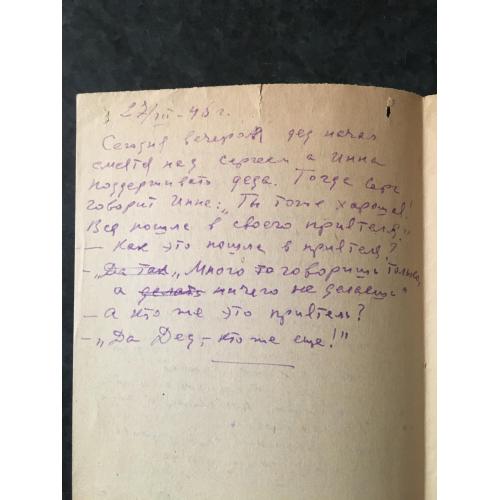 27/III-45 г.
Сегодня вечером дед начал
смеятся над сергеем а Инна
поддерживать деда. Тогда Сер
говорит Инне: „Ты тоже хорошая!
Вся пошла в своего приятеля."
- Как это пошла в приятеля?
- „Да так „Много то говоришь только,
а делать ничего не делаешь"
- а кто же это приятель?
- „Да Дед,- кто же еще!"